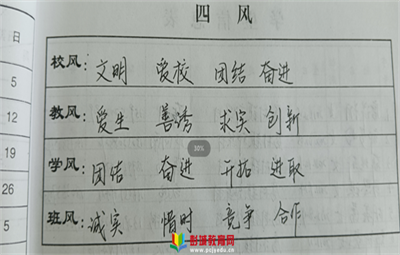 四 风
日
校风: 文明 爱校 团结 奋进
5
教风: 爱生 善诱 求实 创新
12
30%
19
学风: 团结 奋进 开拓 进取
26
班风: 诚实 惜时 竞争 合作
5
彭派教育网
www.pcjyedu.cn